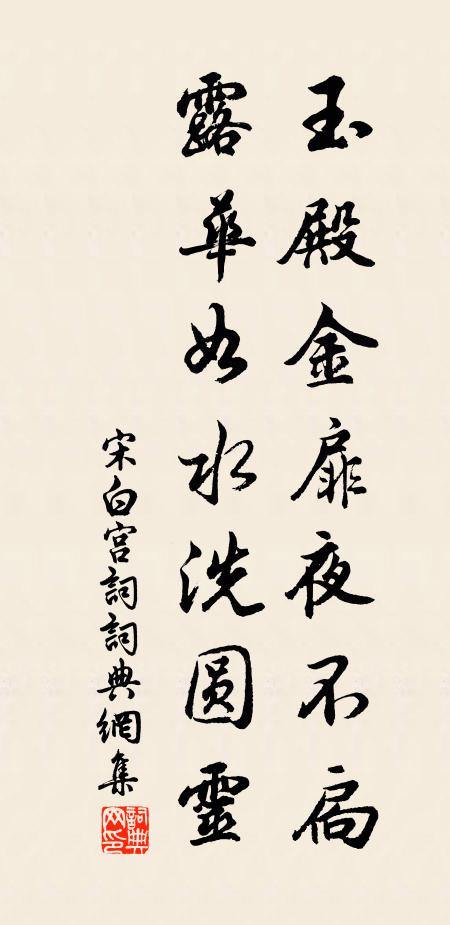 玉殿金扉夜不扃
露華如水洗圓靈
宋白宮詞詞典網集
詞典网印